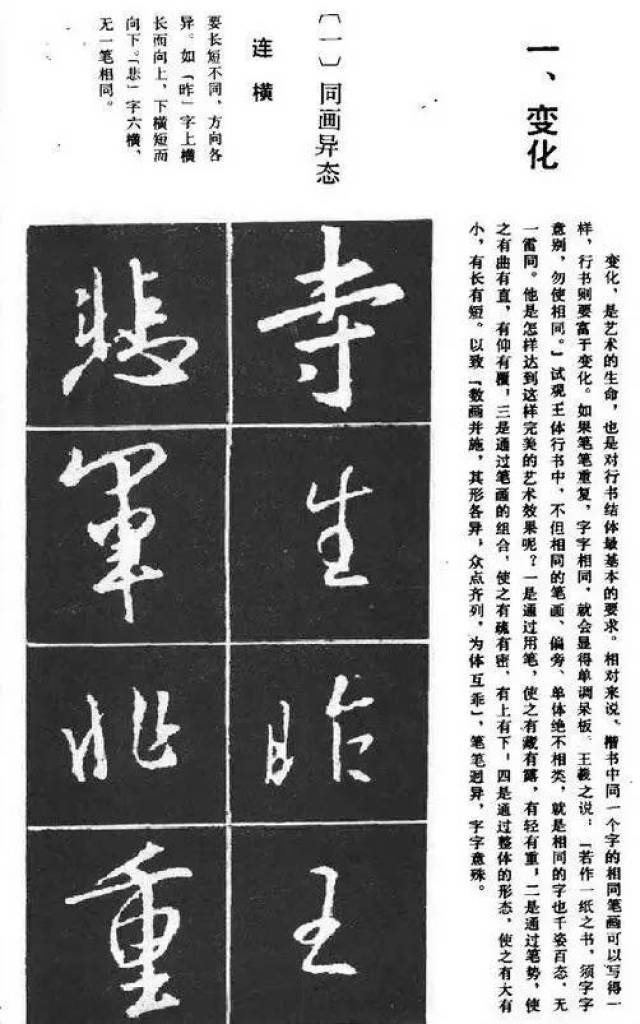 一、变化
变化，是艺术的生命，也是对行书结体最基本的要求。相对来说，楷书中同一个字的相同笔画可以写得一
样，行书则要富于变化。如果笔笔重复，字字相同，就会显得单调呆板。王羲之说：「若作一纸之书，须字字
意别，勿使相同。」试观王体行书中，不但相同的笔画、偏旁、单体绝不相类，就是相同的字也千姿百态，无
一雷同。他是怎样达到这样完美的艺术效果呢？一是通过用笔，使之有藏有露，有轻有重，二是通过笔势，使
之有曲有直，有仰有覆，三是通过笔画的组合，使之有疏有密，有上有下，四是通过整体的形态，使之有大有
小，有长有短。以致「数画并施，其形各异，众点齐列，为体互乖」，笔笔迥异，字字意殊。
〔一〕同画异态
连横
要长短不同，方向各
异。如「昨」字上横
长而向上，下横短而
向下。「悲」字六横，
无一笔相同。
寺
生
昨
王
悲
軍
非
重